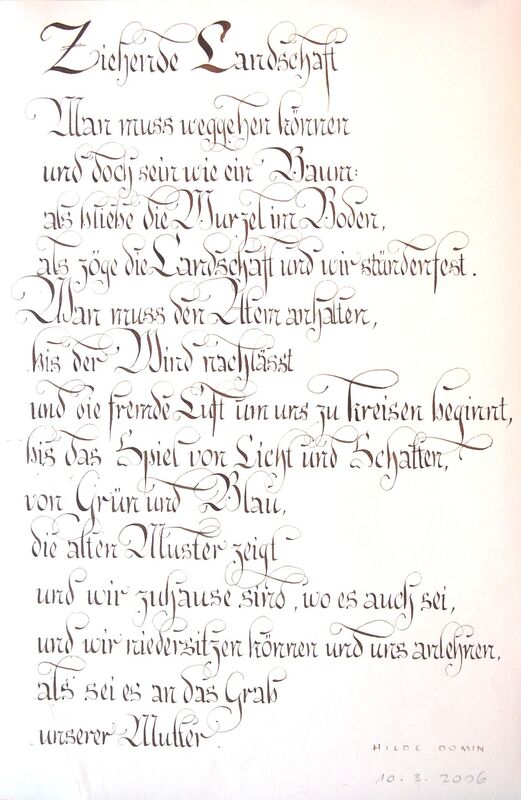 Ziehende Landschaft
Man muss weggehen können
und doch sein wie ein Baum:
als bliebe die Wurzel im Boden,
als zöge die Landschaft und wir ständen fest.
Man muss den Atem anhalten,
bis der Wind nachlässt
und die fremde Luft um uns zu kreisen beginnt,
bis das Spiel von Licht und Schatten,
von Grün und Blau,
die alten Muster zeigt
und wir zuhause sind, wo es auch sei,
und wir niedersitzen können und uns anlehnen,
als sei es an das Grab
unserer Mutter.
HILDE DOMIN
10. 3. 2006